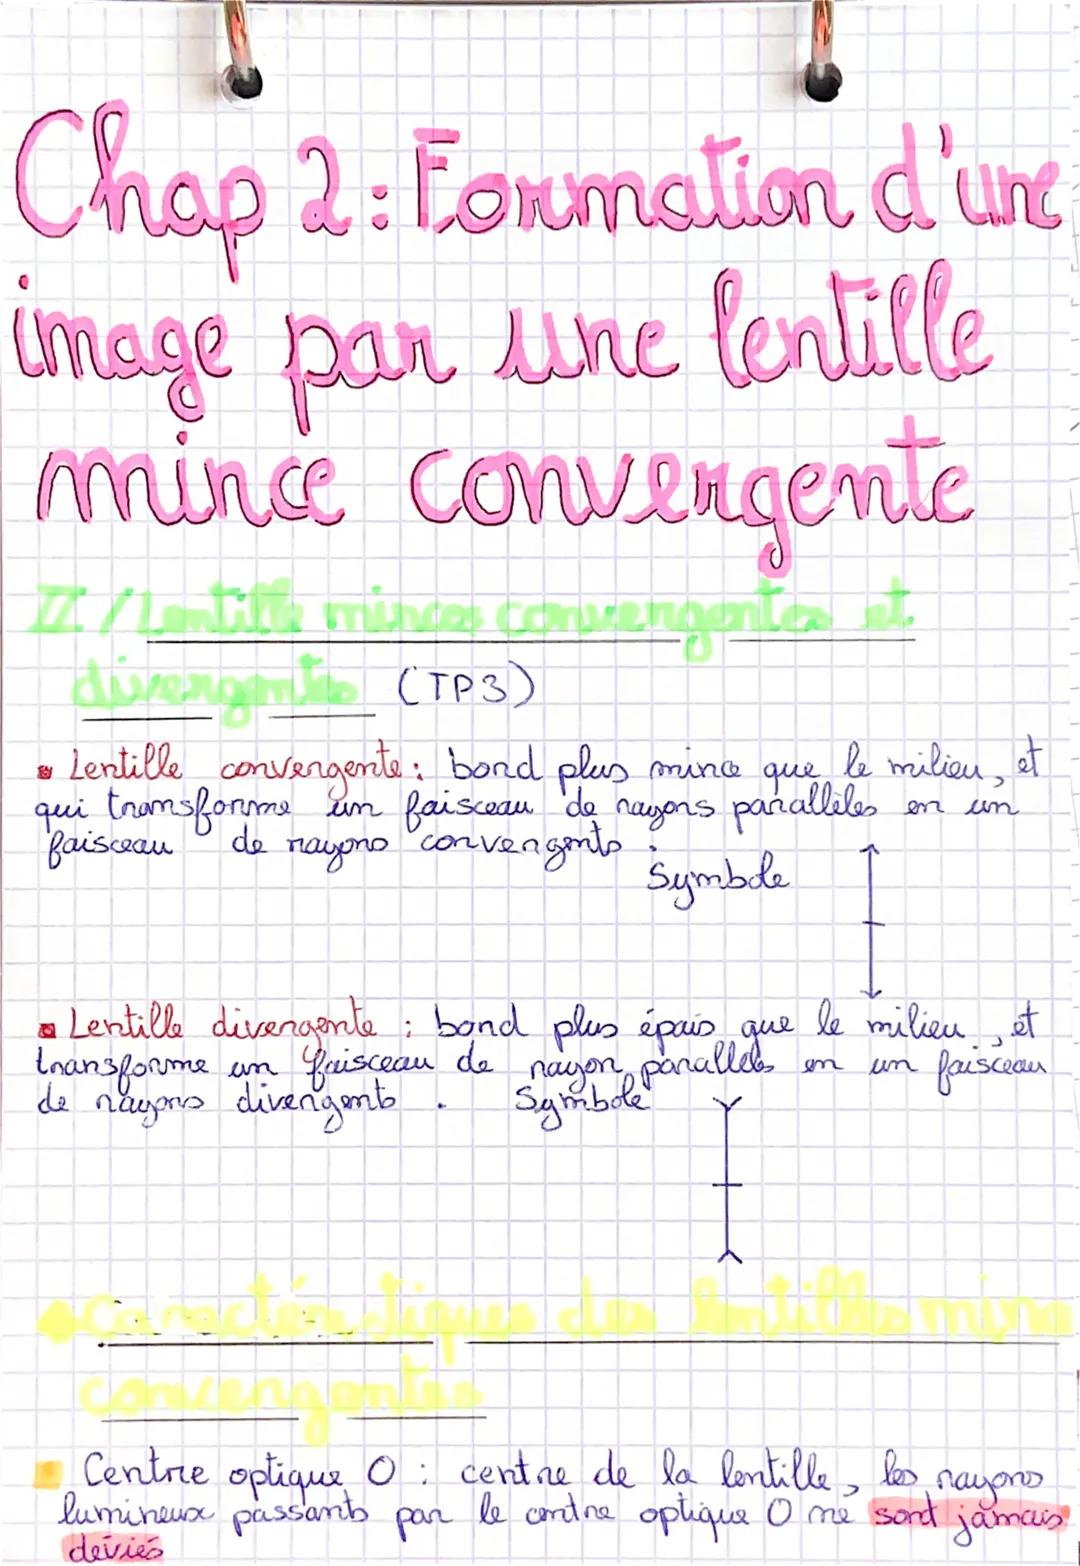 Chap 2 : Formation d'une
image par une lentille
mince convergente
II / Lentille minces convergentes et
divergentes (TP3)
Lentille convergente : bord plus mince que le milieu, et
qui transforme un faisceau de rayons parallèles en un
faisceau de rayons convergents.
Symbole
Lentille divergente : bord plus épais que le milieu, et
transforme un faisceau de rayon parallèles en un faisceau
de rayons divergents. Symbole
Caractéristiques des lentilles mince
convergentes
Centre optique O : centre de la lentille, les rayons
lumineux passants par le centre optique O ne sont jamais
déviés